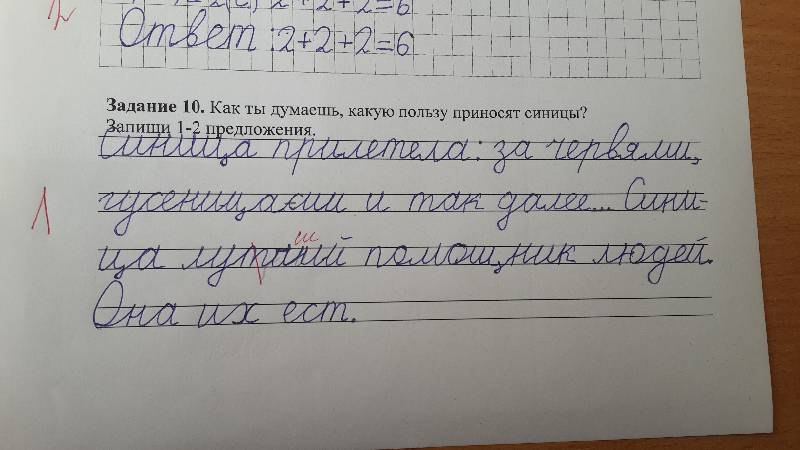 2+2+2=6
Ответ: 2+2+2=6
Задание 10. Как ты думаешь, какую пользу приносят синицы?
Запиши 1-2 предложения.
Синица прилетела: за червями,
гусеницаеми и так далее... Сини-
1
ш
ца лутший помощник людей.
Она их ест.